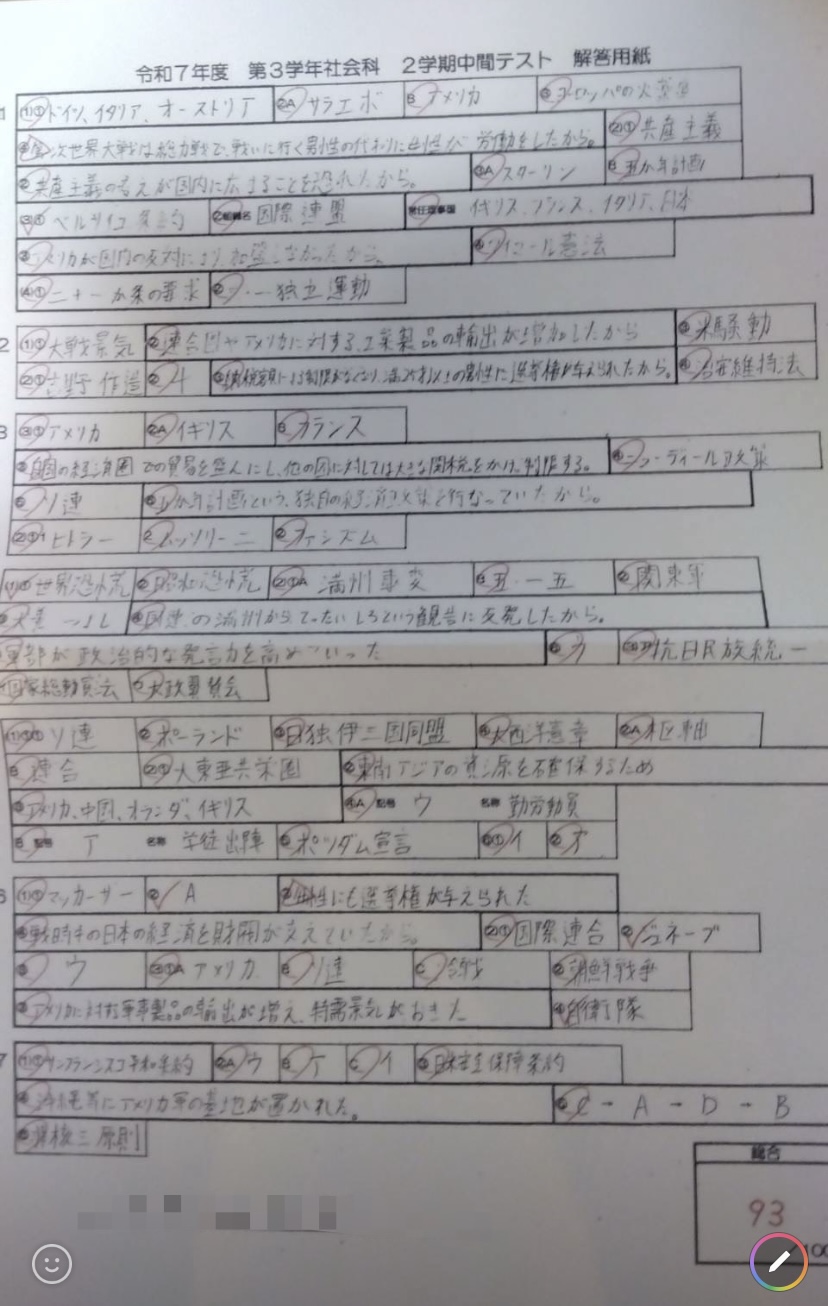 令和7年度 第3学年社会科 2学期中間テスト 解答用紙
1 (1)① ドイツ、イタリア、オーストリア ②A サラエボ B アメリカ ③ ヨーロッパの火薬庫
④ 第一次世界大戦は総力戦で、戦いに行く男性の代わりに女性が 労働をしたから。 (2)① 共産主義
② 共産主義の考えが国内に広まることを恐れたから。 ③A スターリン B 五か年計画
(3)① ベルサイユ条約 ② 組織名 国際連盟 常任理事国 イギリス、フランス、イタリア、日本
③ アメリカが国内の反対により、加盟しなかったから。 ④ ワイマール憲法
(4)① 二十一か条の要求 ② 三・一独立運動
2 (1)① 大戦景気 ② 連合国やアメリカに対する、工業製品の輸出が増加したから ③ 米騒動
(2)① 吉野作造 ② 4 ③ 納税額による制限がなくなり、満25才以上の男性に選挙権が与えられたから。 ④ 治安維持法
3 (1)① アメリカ ②A イギリス B フランス
③ 自国の経済圏での貿易を盛んにし、他の国に対しては大きな関税をかけ、制限する。 ④ ニューディール政策
⑤ ソ連 ⑥ 五か年計画という、独自の経済政策を行なっていたから。
(2)① ヒトラー ② ムッソリーニ ③ ファシズム
(1)① 世界恐慌 ② 昭和恐慌 (2)①A 満州事変 B 五・一五 ② 関東軍
③ 犬養 ④ 国連の満州からてったいしろという観告に反発したから。
軍部が政治的な発言力を高めていった ⑥ カ (3)① 抗日民族統一
国家総動員法 ③ 大政翼賛会
(1)① ソ連 ② ポーランド ③ 日独伊三国同盟 ④ 大西洋憲章 ⑤A 枢軸
B 連合 (2)① 大東亜共栄圏 ② 東南アジアの資源を確保するため
③ アメリカ、中国、オランダ、イギリス ④A 記号 ウ 名称 勤労動員
B 記号 ア 名称 学徒出陣 ⑤ ポツダム宣言 ⑥① イ ② オ
6 (1)① マッカーサー ② A ③ 女性にも選挙権が与えられた
④ 戦時中の日本の経済を財閥が支えていたから。 (2)① 国際連合 ② ジュネーブ
③ ウ (3)①A アメリカ B ソ連 C 冷戦 ② 朝鮮戦争
③ アメリカに対する軍事製品の輸出が増え、特需景気がおきた ④ 自衛隊
7 (1)① サンフランシスコ平和条約 ②A ウ B ア C イ ③ 日米安全保障条約
④ 沖縄等にアメリカ軍の基地が置かれた。 ⑤ C - A - D - B
⑥ 非核三原則
総合
93
/100